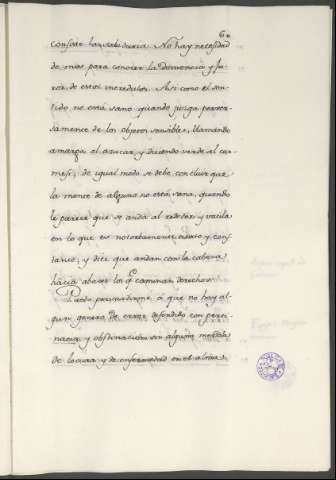 6.
consorte han sabiduria. No hay necesidad
de mas para conocer la demencia y fu-
ror, de estos incredulos. Asi como el sen-
tido no está sano quando juzga perver-
samente de los objetos sensibles, llamando
amarga el azucar, y diciendo verde al car-
mesi; de igual modo se debe concluir que
la mente de alguno no está sana, quando
le parece que se anda al rededor y vacila
en lo que es notoriamente cierto y cons-
tante, y dice que andan con la cabeza
hacia abaxo los q.e caminan derechos.
Puedo persuadirme á que no hay al-
gun genero de error defendido con perti-
nacia y obstinacion sin alguna mezcla
de locura y de enfermedad en el alma;